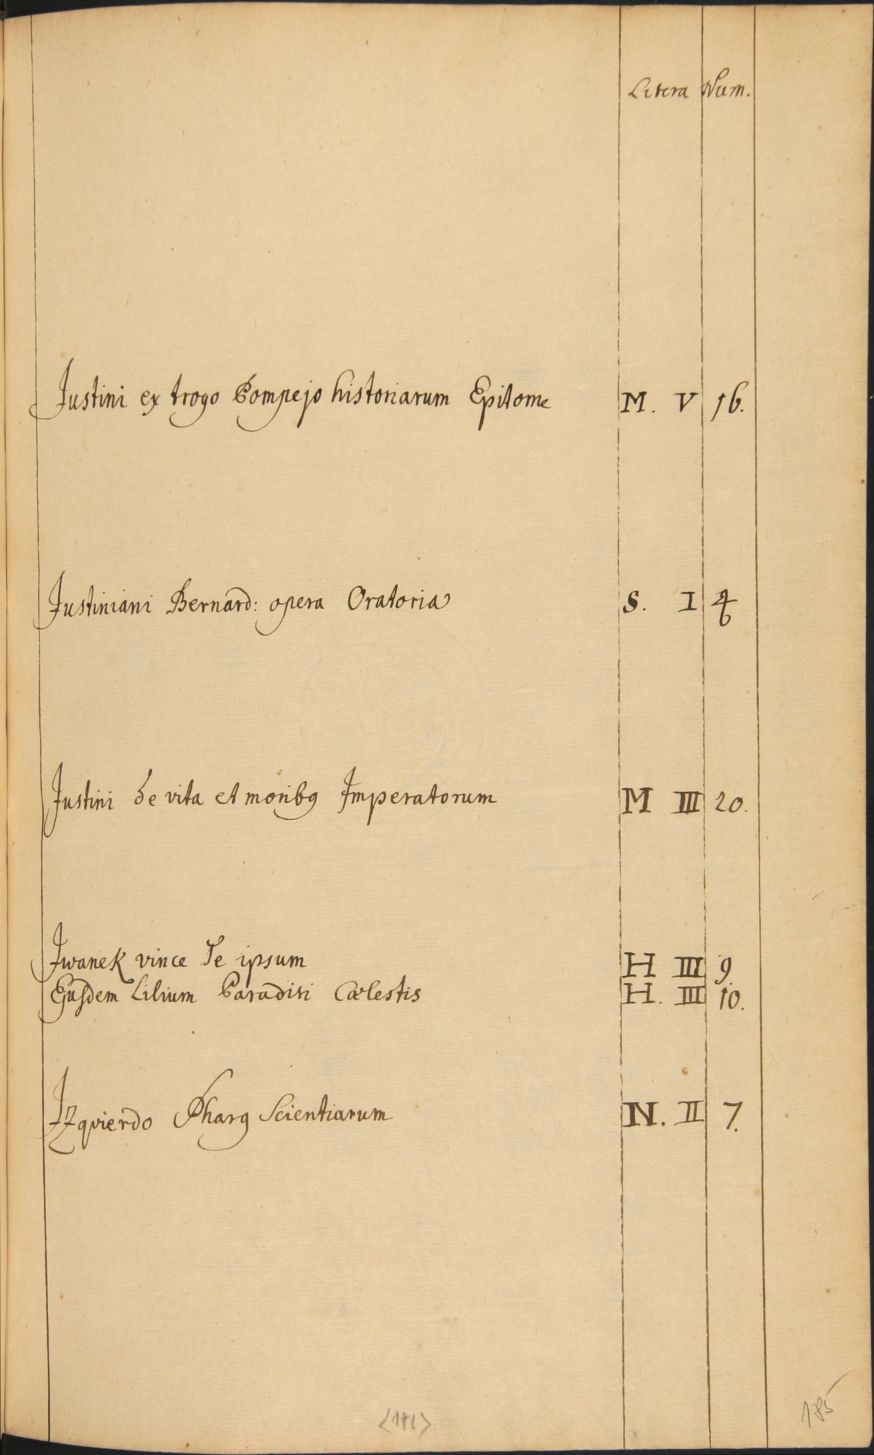 Litera Num.
Justini ex trogo Pompejo historiarum Epitome M. V 16.
Justiniani Bernard: opera Oratoria S. I
Justini de vita et moribꝯ Imperatorum M III 20.
Jwanek vince Te ipsum H III 9
Ejusdem Lilium Paradisi Cœlestis H. III 10.
Jzquierdo Pharꝯ Scientiarum N. II 7.
185